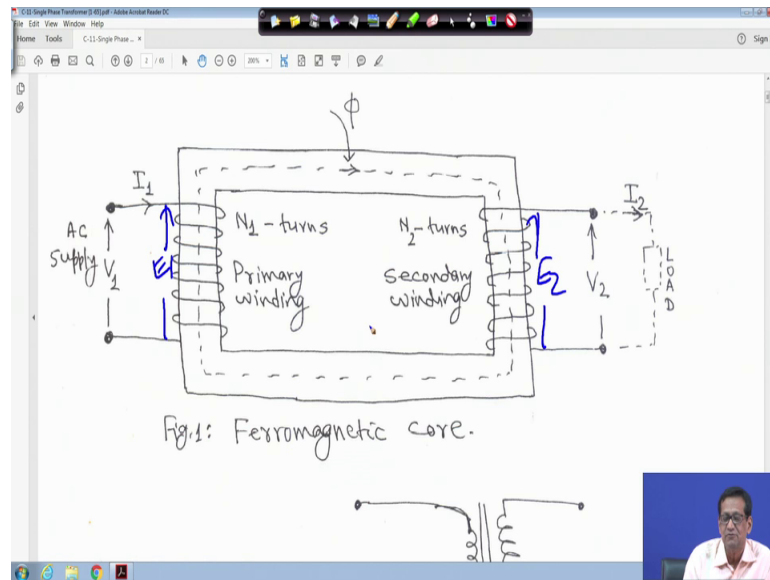 C-11-Single Phase Transformer [1-65].pdf - Adobe Acrobat Reader DC
File Edit View Window Help
Home Tools C-11-Single Phase ... × Sign
2 / 65 200%
Φ
I1
I2
AC
supply
V1
E1
N1-turns
Primary
winding
N2-turns
secondary
winding
E2
V2
LOAD
Fig.1: Ferromagnetic core.